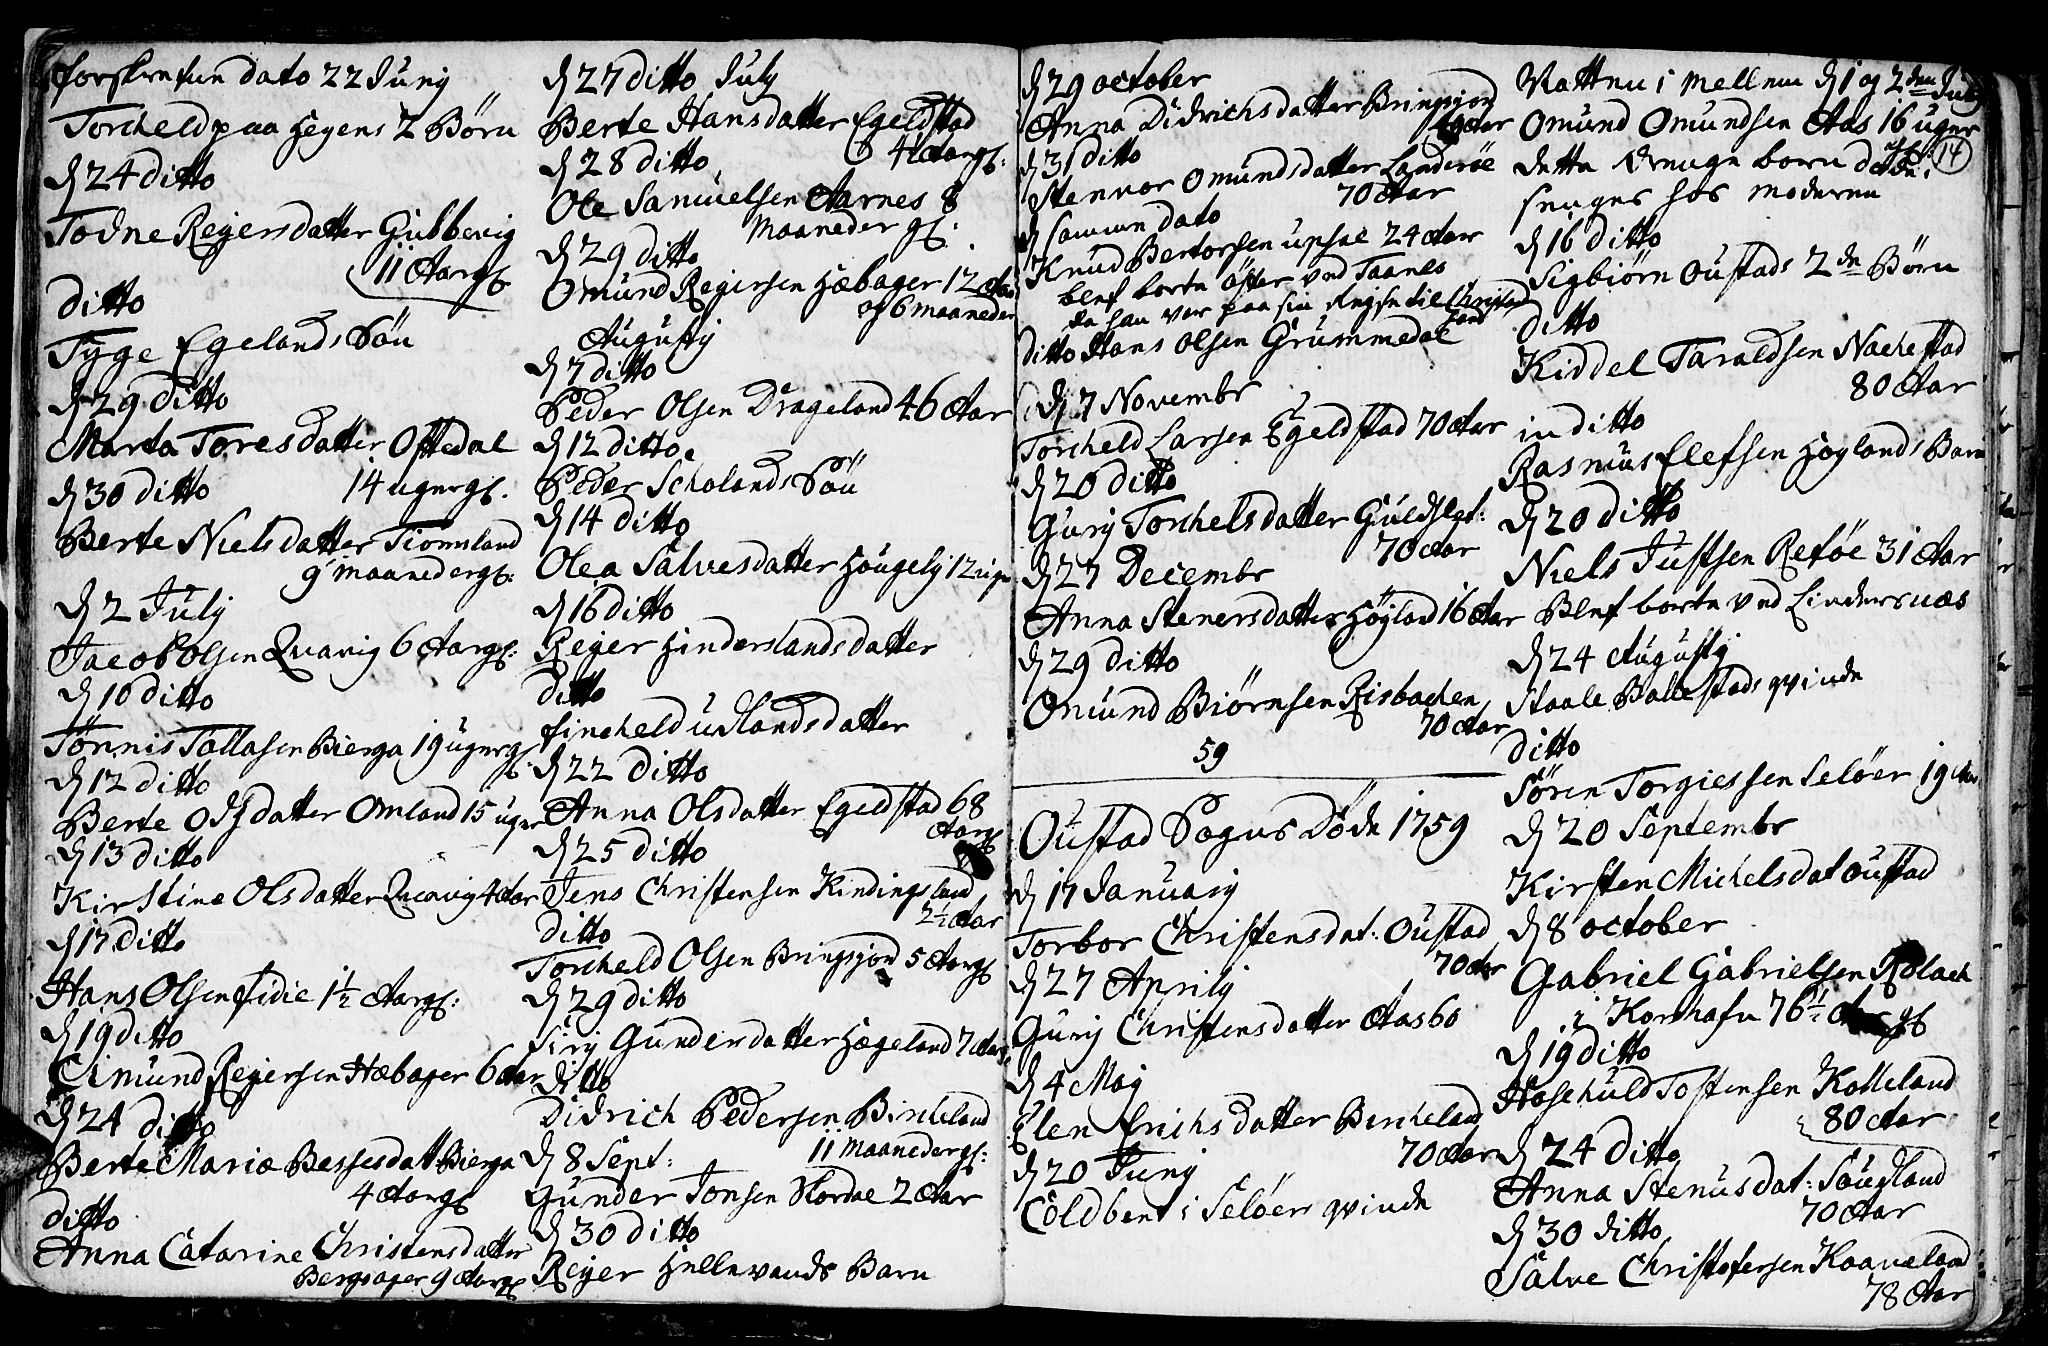 forskrefun dato 22 Junij
Torcheld paa Heyens 2 Børn
d 24 ditto
Todne Reyersdatter Gubbevig
11 Aar gl
ditto
Tyge Egelands Søn
d 29 ditto
Marta Toresdatter Oftedal
14 uger gl.
d 30 ditto
Berte Nielsdatter Tiomland
9 Maaneder gl:
d 2 July
Jacob Olsen Qvavig 6 Aar gl:
d 10 ditto
Tønnis Tollasen Bierga 19 uger gl
d 12 ditto
Berte Odsdatter Omland 15 uger
d 13 ditto
Kirstine Olsdatter Qvavig 4 Aar
d 17 ditto
Hans Olsen fidie 1½ Aar gl:
d 19 ditto
Aamund Reyersen Hæbager 6 Aar
d 24 ditto
Berte Maria Bessesdatt Bierga
4 Aar gl
ditto
Anna Catarine Christensdatter
Bergsager 9 Aar gl
d 27 ditto July
Berte Hansdatter Egeldstad
4 Aar gl:
d 28 ditto
Ole Samuelsen Aarnes 8
Maaneder gl.
d 29 ditto
Omund Regersen Hæbager 12 Aar
og 6 maaneder
Augustij
d 7 ditto
Peder Olsen Drageland 46 Aar
d 12 ditto
Peder Scholands Søn
d 14 ditto
Olea Salvesdatter Høugelij 12 uger
d 16 ditto
Reyer Hinderslands datter
ditto
fincheld udlands datter
d 22 ditto
Anna Olsdatter Egeldstad 68
Aar gl
d 25 ditto
Jens Christensen Kindingsland
2½ Aar
ditto
Torcheld Olsen Bringsjord 5 Aar gl
d 29 ditto
Sirij Gunderdatter Hægeland 7 Aar
ditto
Didrich Pedersen Bircheland
11 Maaneder gl:
d 8 Sept:
Gunder Jonsen Hordal 2 Aar
d 30 ditto
Reyer Hellevands Barn
d 29 october
Anna Didrichsdatter Bringsjord
Aar
d 31 ditto
Stenvor Omundsdatter Landeröe
70 Aar
d samme dato
Knud Bertorsen upsal 24 Aar
blef borte øster ved Taanes
da han var paa sin Reyse til Christiand
sand
ditto Hans Olsen Grummedal
d 7 Novembr
Torcheld Larsen Egeldstad 70 Aar
d 20 ditto
Gurij Torchelsdatter
70 Aar
d 27 Decembr
Anna Stenersdatter Høyland 16 Aar
d 29 ditto
Omund Biørnsen Risbachen
70 Aar
59
Oustad Sogns Døde 1759
d 17 Januarij
Torbor Christensdat: Oustad
70 Aar
d 27 Aprilij
Gurij Christensdatter Aas 60
d 4 Maij
Elen Erichsdatter Bercheland
70 Aar
d 20 Junij
Coldbent i Seløer qvinde
Natten i mellem d 1 og 2den July
Omund Omundsen Aas 16 uger
14
dette drenge barn døde i
senges hos moderen
d 16 ditto
Sigbiørn Oustads 2de Børn
ditto
Kiddel Taraldsen Nachestad
80 Aar
in ditto
Rasmus Elefsen Høylands Barn
d 20 ditto
Niels Justsen Reføe 31 Aar
Blef borte ved Lindersnæs
d 24 Augustij
Staale Ballestads qvinde
ditto
Sören Torgiessen Seløer 19 Aar
d 20 Septembr
Kirsten Michelsdat Oustad
d 8 october
Gabriel Gabrielsen
i Korshafn 76½ Aar gl
d 19 ditto
Hoschuld Tostensen Kolleland
80 Aar
d 24 ditto
Anna Stenusdat: Sougland
70 Aar
d 30 ditto
Salve Christofersen Kaaveland
78 Aar